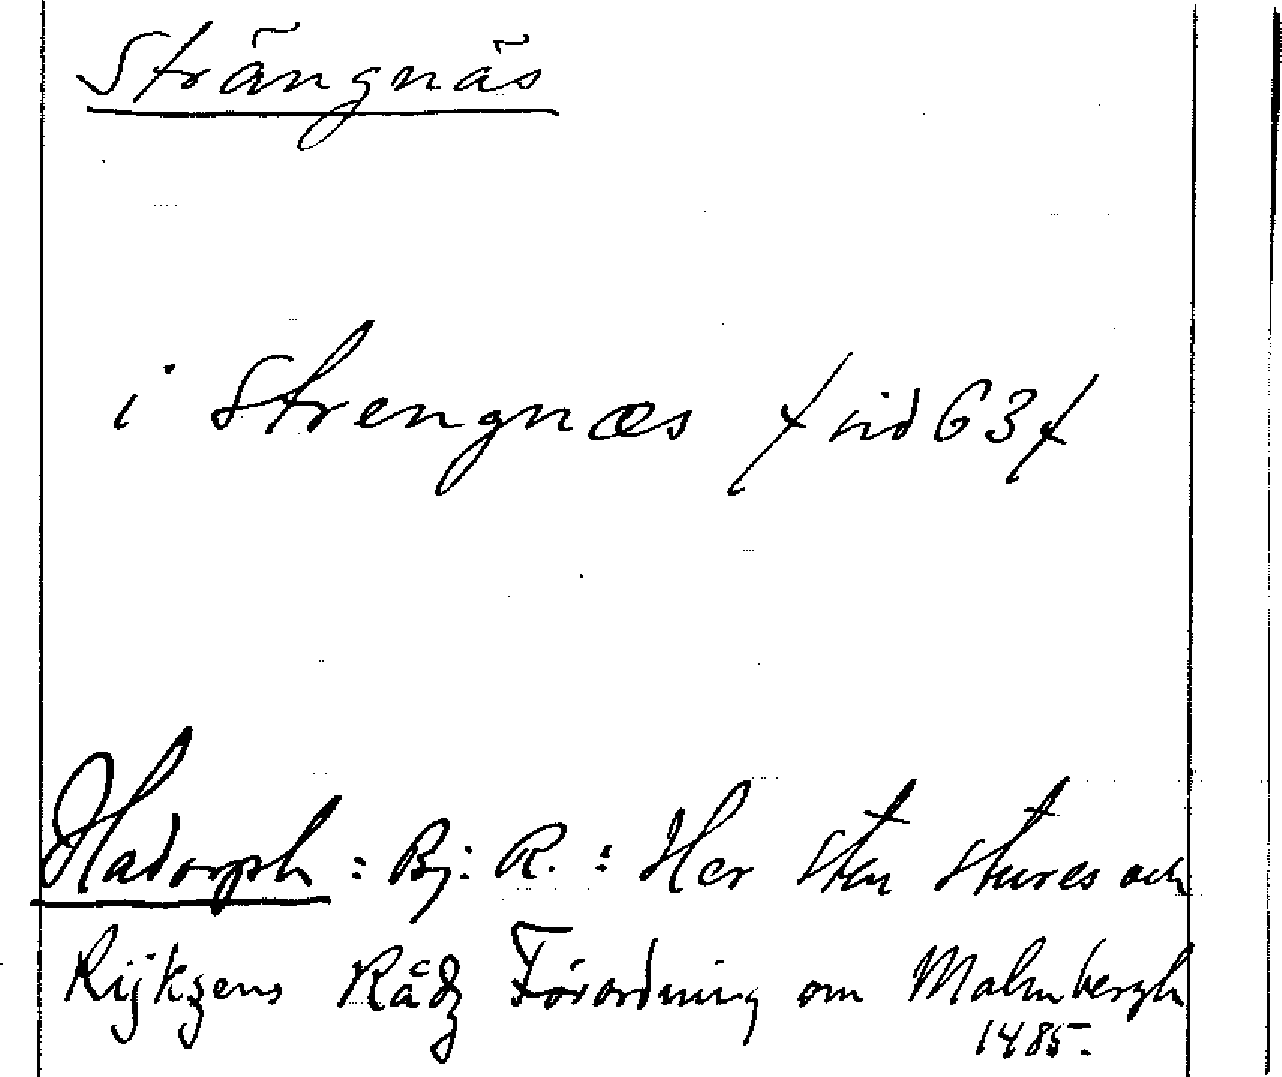 Strängnäs
i Strengnæs / sid 63 /
Hadorph : Bj: R. : Her Sten Stures och
Rijkzens Rådz Förordning om Malmbergh
1485.